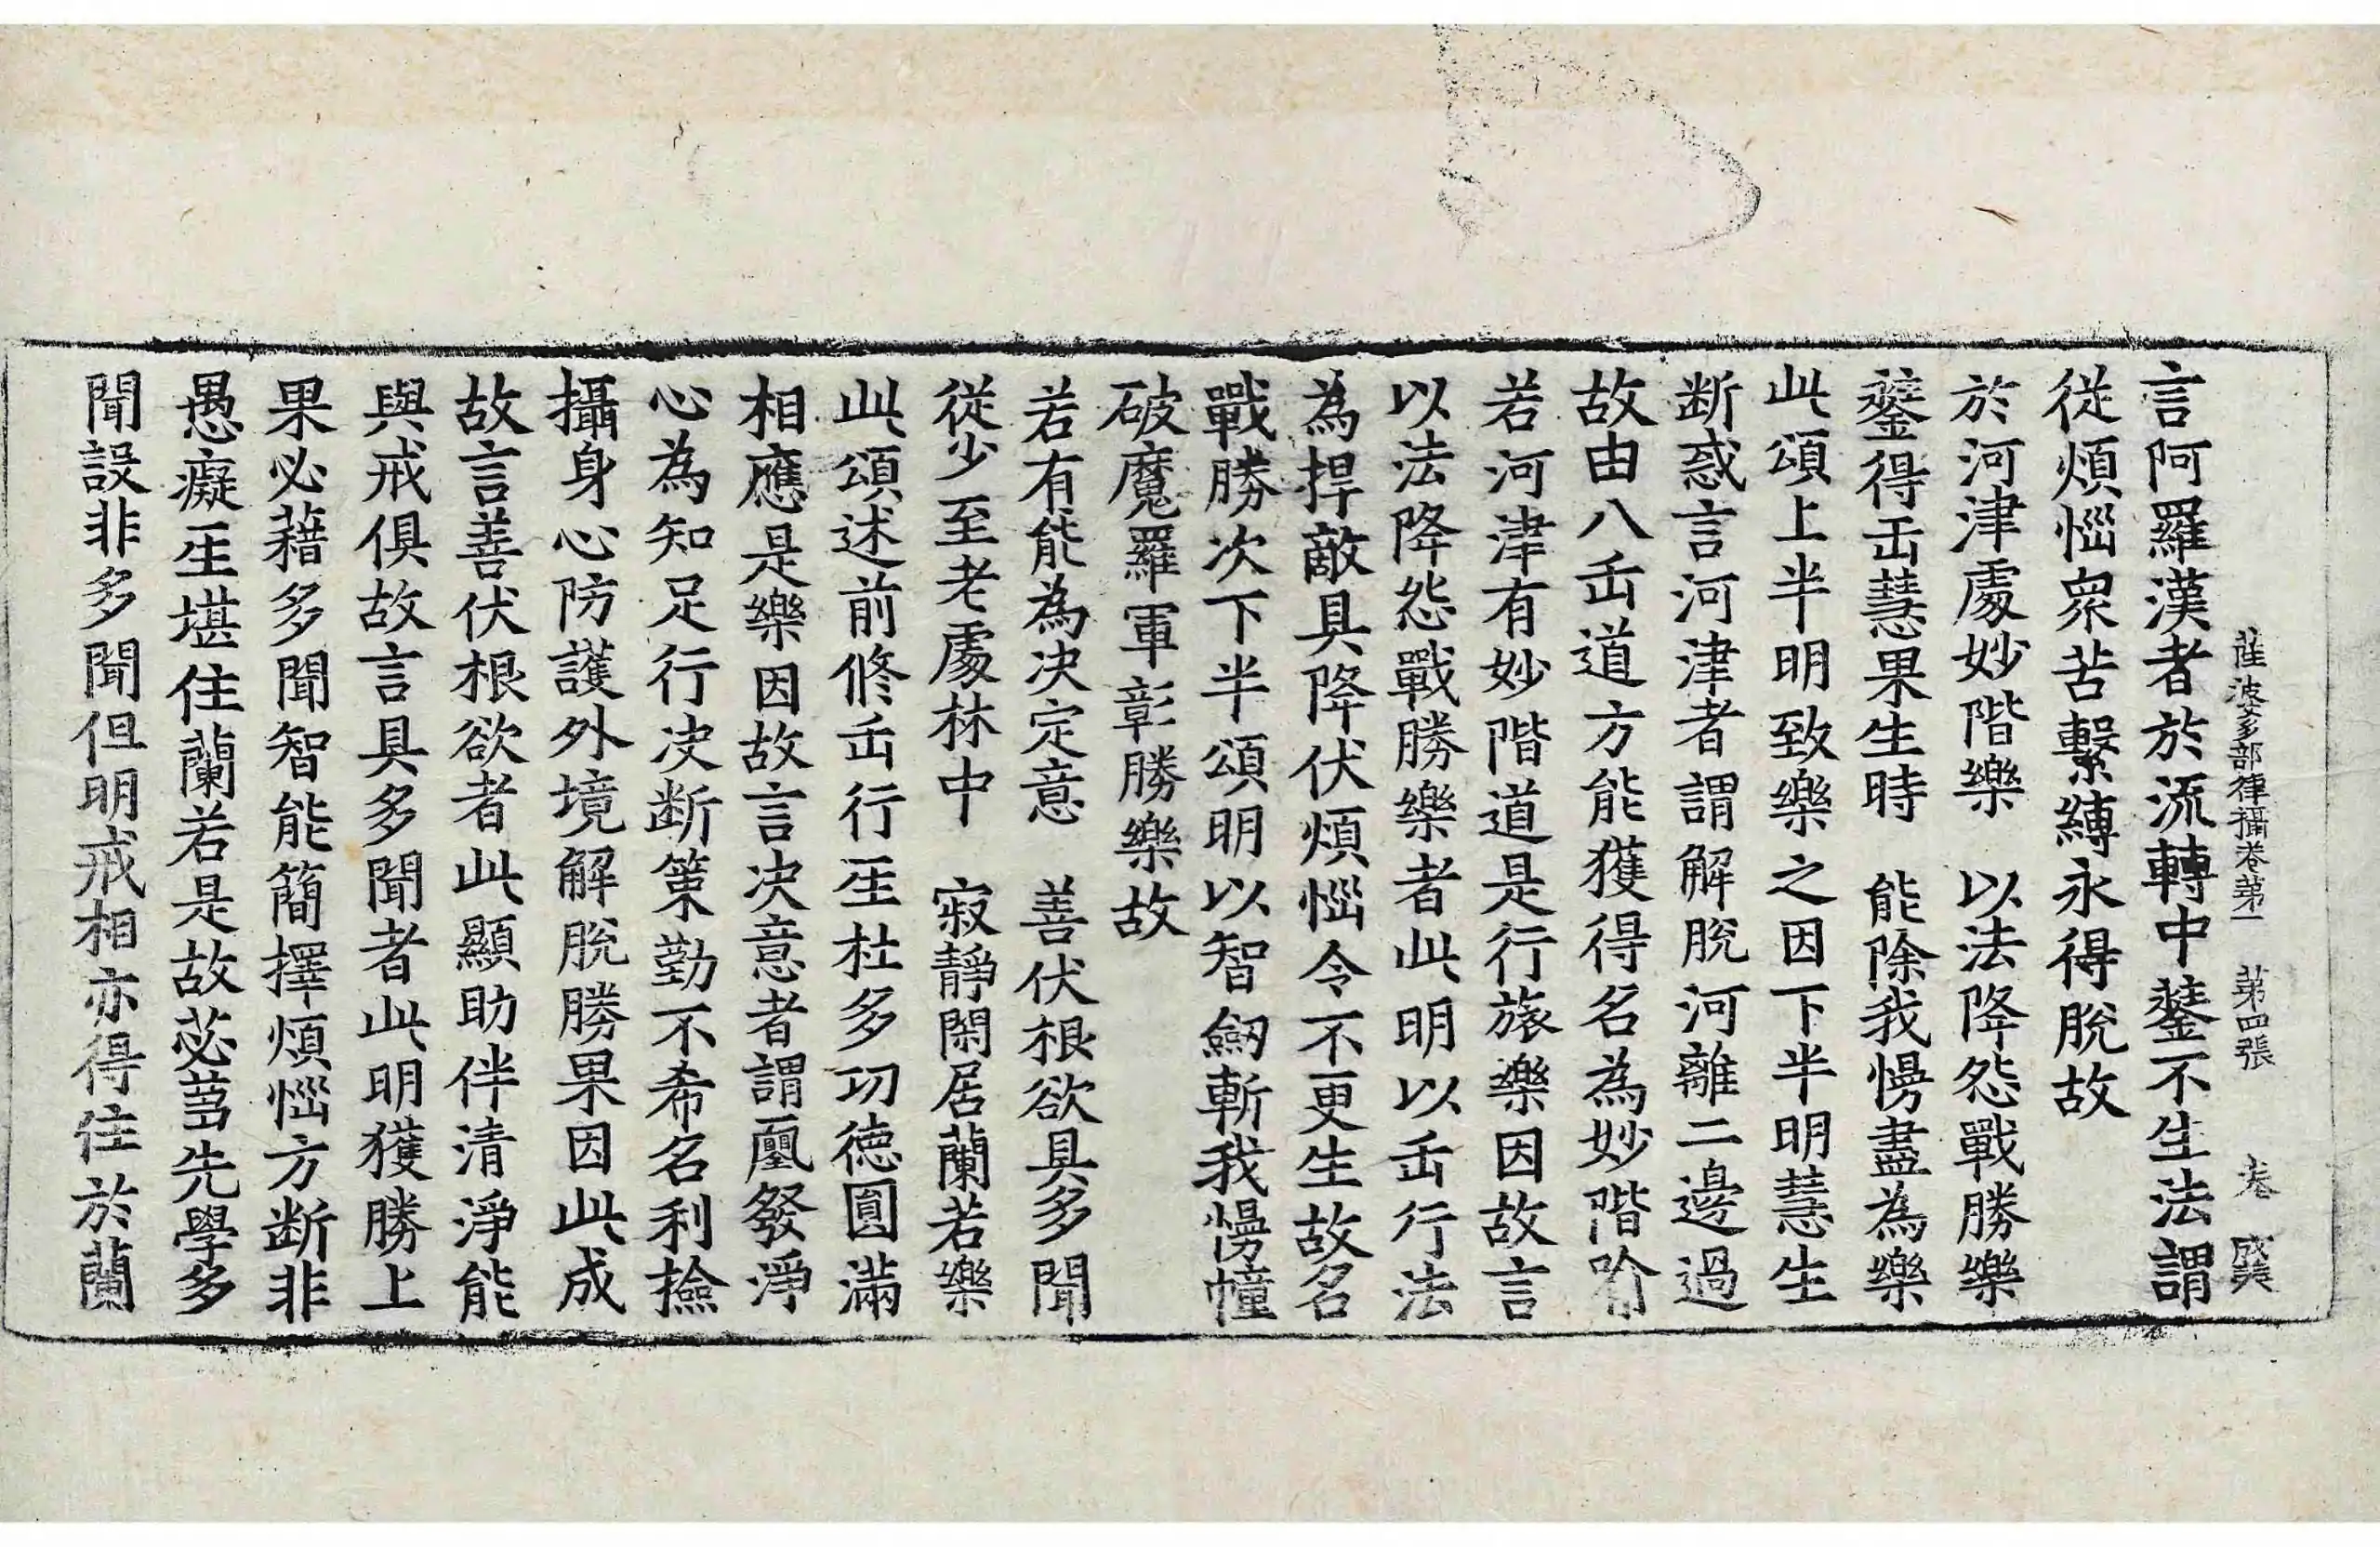 薩婆多部律攝卷第一　第四張
言阿羅漢者於流轉中𨭻不生法謂
從煩惱衆苦繫縛永得脫故
於河津處妙階樂　以法降怨戰勝樂
𨭻得𠙺慧果生時　能除我慢盡為樂
此頌上半明致樂之因下半明慧生
断惑言河津者謂解脫河離二邊過
故由八𠙺道方能獲得名為妙階
若河津有妙階道是行旅樂因故言
以法降怨戰勝樂者此明以𠙺行法
為捍敵具降伏煩惱令不更生故名
戰勝次下半頌明以智劒斬我慢幢
破魔羅軍彰勝樂故
若有能為决定意　善伏根欲具多聞
從少至老處林中　寂靜閑居蘭若樂
此頌述前修𠙺行𤯔杜多功德圓滿
相應是樂因故言决意者謂𡔈發淨
心為知足行决断策勤不希名利撿
攝身心防護外境解脫勝果因此成
故言善伏根欲者此顯助伴清淨能
與戒俱故言具多聞者此明獲勝上
果必藉多聞智能簡擇煩惱方断非
愚癡𤯔堪住蘭若是故苾芻先學多
聞設非多聞但明戒相亦得住於蘭